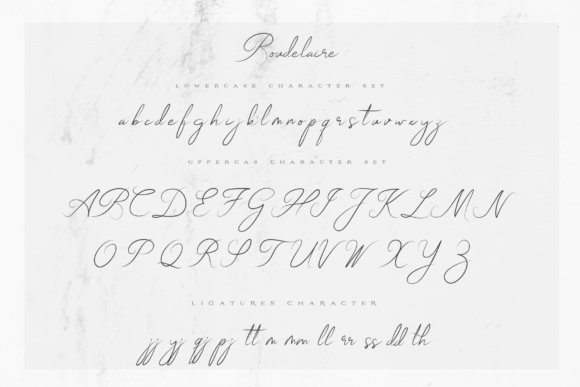 Boudelaire
LOWERCASE CHARACTER SET
abcdefghijklmnopqrstuvwxyz
UPPERCAS CHARACTER SET
ABCDEFGHIJKLMN
OPQRSTUVWXYZ
LIGATURES CHARACTER
jj yj gj pj tt m mm ll rr ss dd th